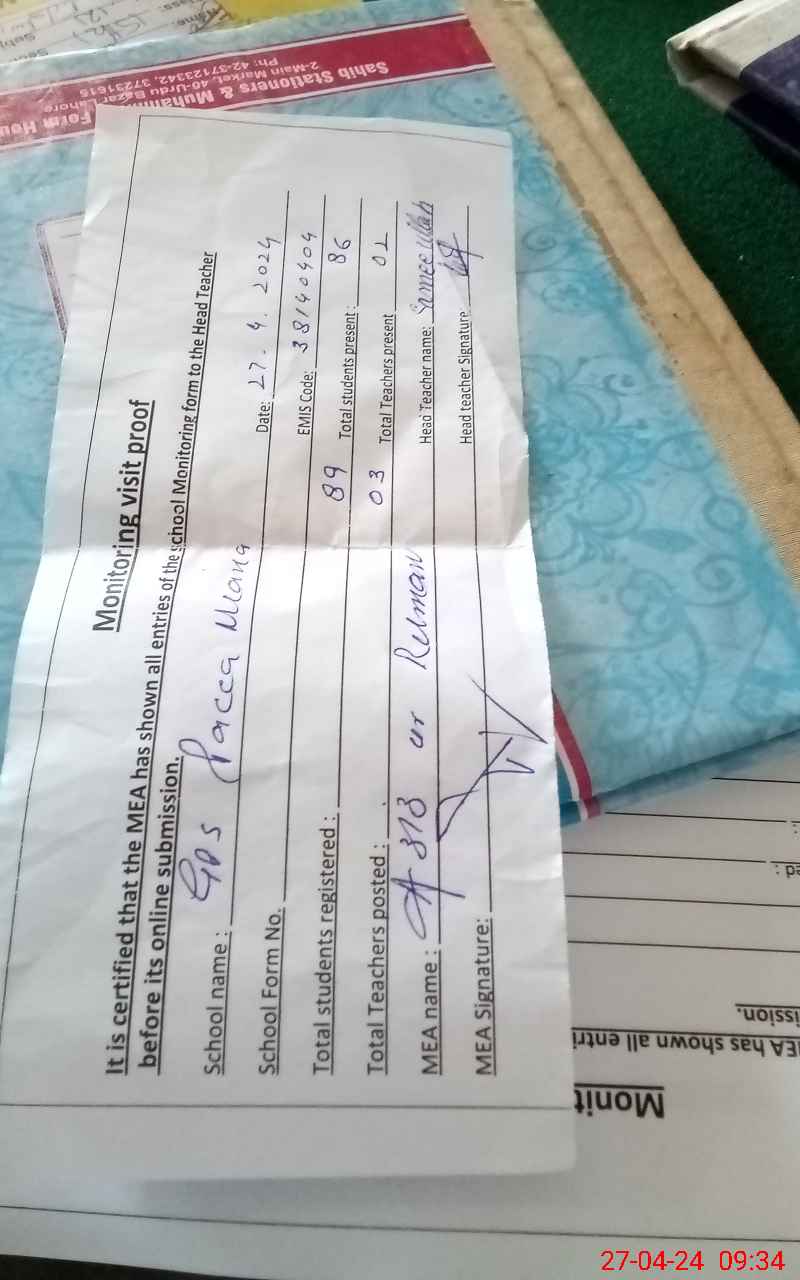 Monitoring visit proof
It is certified that the MEA has shown all entries of the school Monitoring form to the Head Teacher
before its online submission.
School name : GPS Pacca Miana Date: 27.4.2024
School Form No. EMIS Code: 38140404
Total students registered : 89 Total students present : 86
Total Teachers posted : 03 Total Teachers present 02
MEA name : ur Rehman Head Teacher name: Samee Ullah
MEA Signature: Head teacher Signature
Sahib Stationers & Muham
Form Hou
2-Main Market, 40-Urdu Bazar Lahore
Ph: 42-37123342, 37231615
Monit
MEA has shown all entri
ission.
ed :
27-04-24 09:34